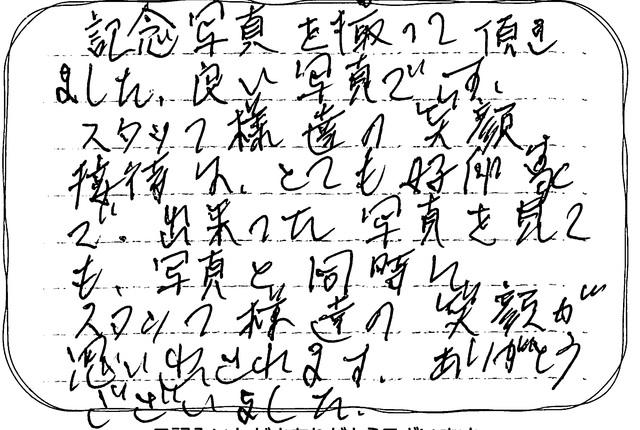 記念写真を撮って頂き
ました、良い写真です。
スタッフ様達の笑顔
接待は、とても好印象
で、出来った写真を見て
も、写真と同時に、
スタッフ様達の笑顔が
思いだされます。ありがとう
ございました。